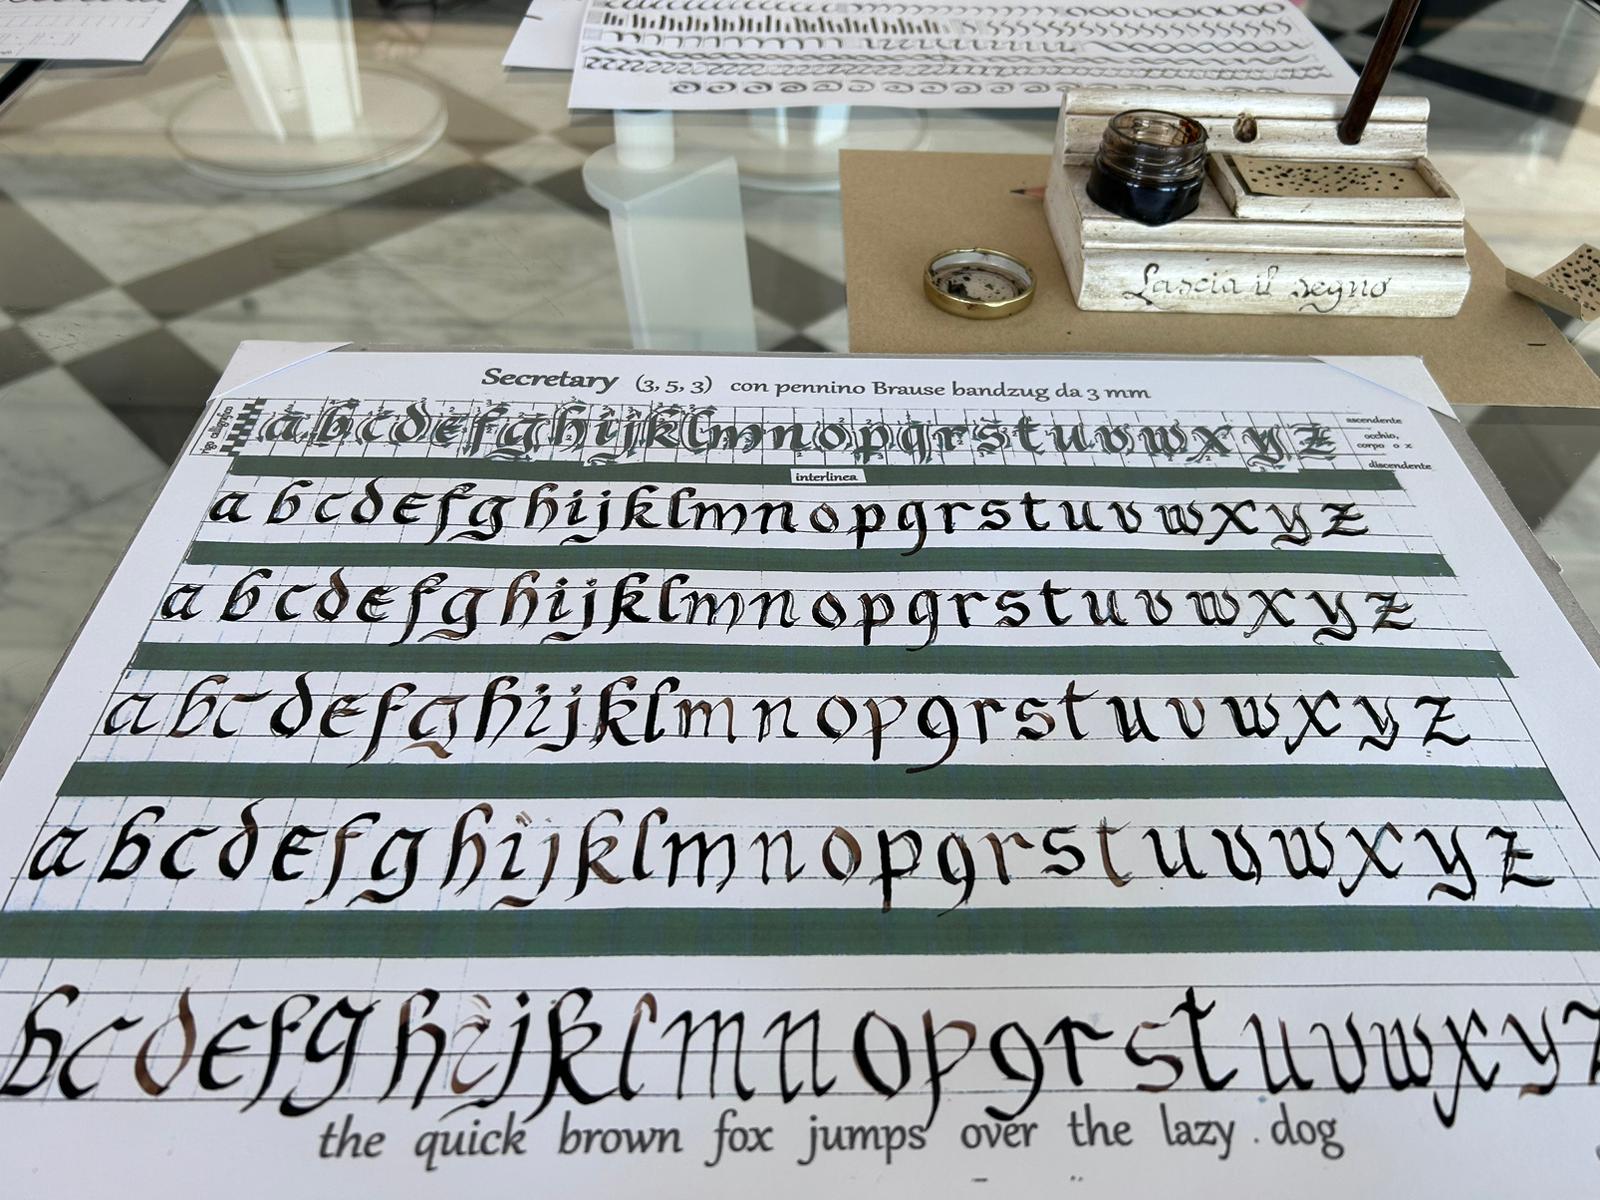 Lascia il segno
Secretary (3, 5, 3) con pennino Brause bandzug da 3 mm
a b c d e f g h i j k l m n o p q r s t u v w x y z
ascendente
occhio,
corpo o x
discendente
interlinea
a b c d e f g h i j k l m n o p q r s t u v w x y z
a b c d e f g h i j k l m n o p q r s t u v w x y z
a b c d e f g h i j k l m n o p q r s t u v w x y z
a b c d e f g h i j k l m n o p q r s t u v w x y z
b c d e f g h i j k l m n o p q r s t u v w x y z
the quick brown fox jumps over the lazy . dog